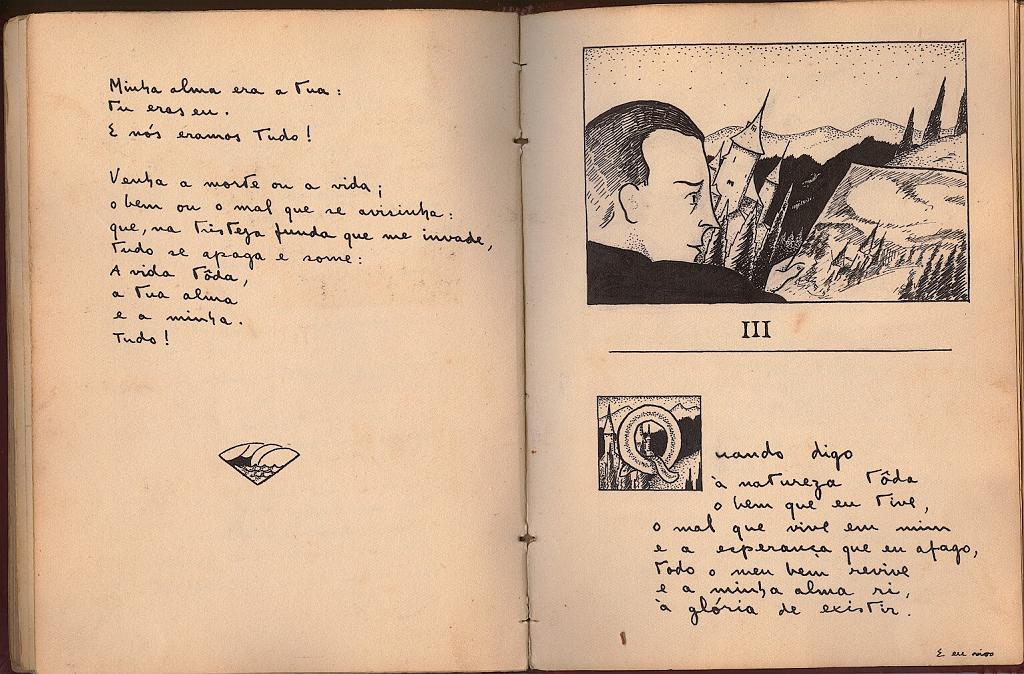 Minha alma era a tua:
tu eras eu.
E nós eramos tudo!
Venha a morte ou a vida;
o bem ou o mal que se avisinha:
que, na tristeza funda que me invade,
tudo se apaga e some:
A vida tôda,
a tua alma
e a minha.
Tudo!
III
Quando digo
à natureza tôda
o bem que eu tive,
o mal que vive em mim
e a esperança que eu afago,
todo o meu bem revive
e a minha alma ri,
à glória de existir.
E eu vivo